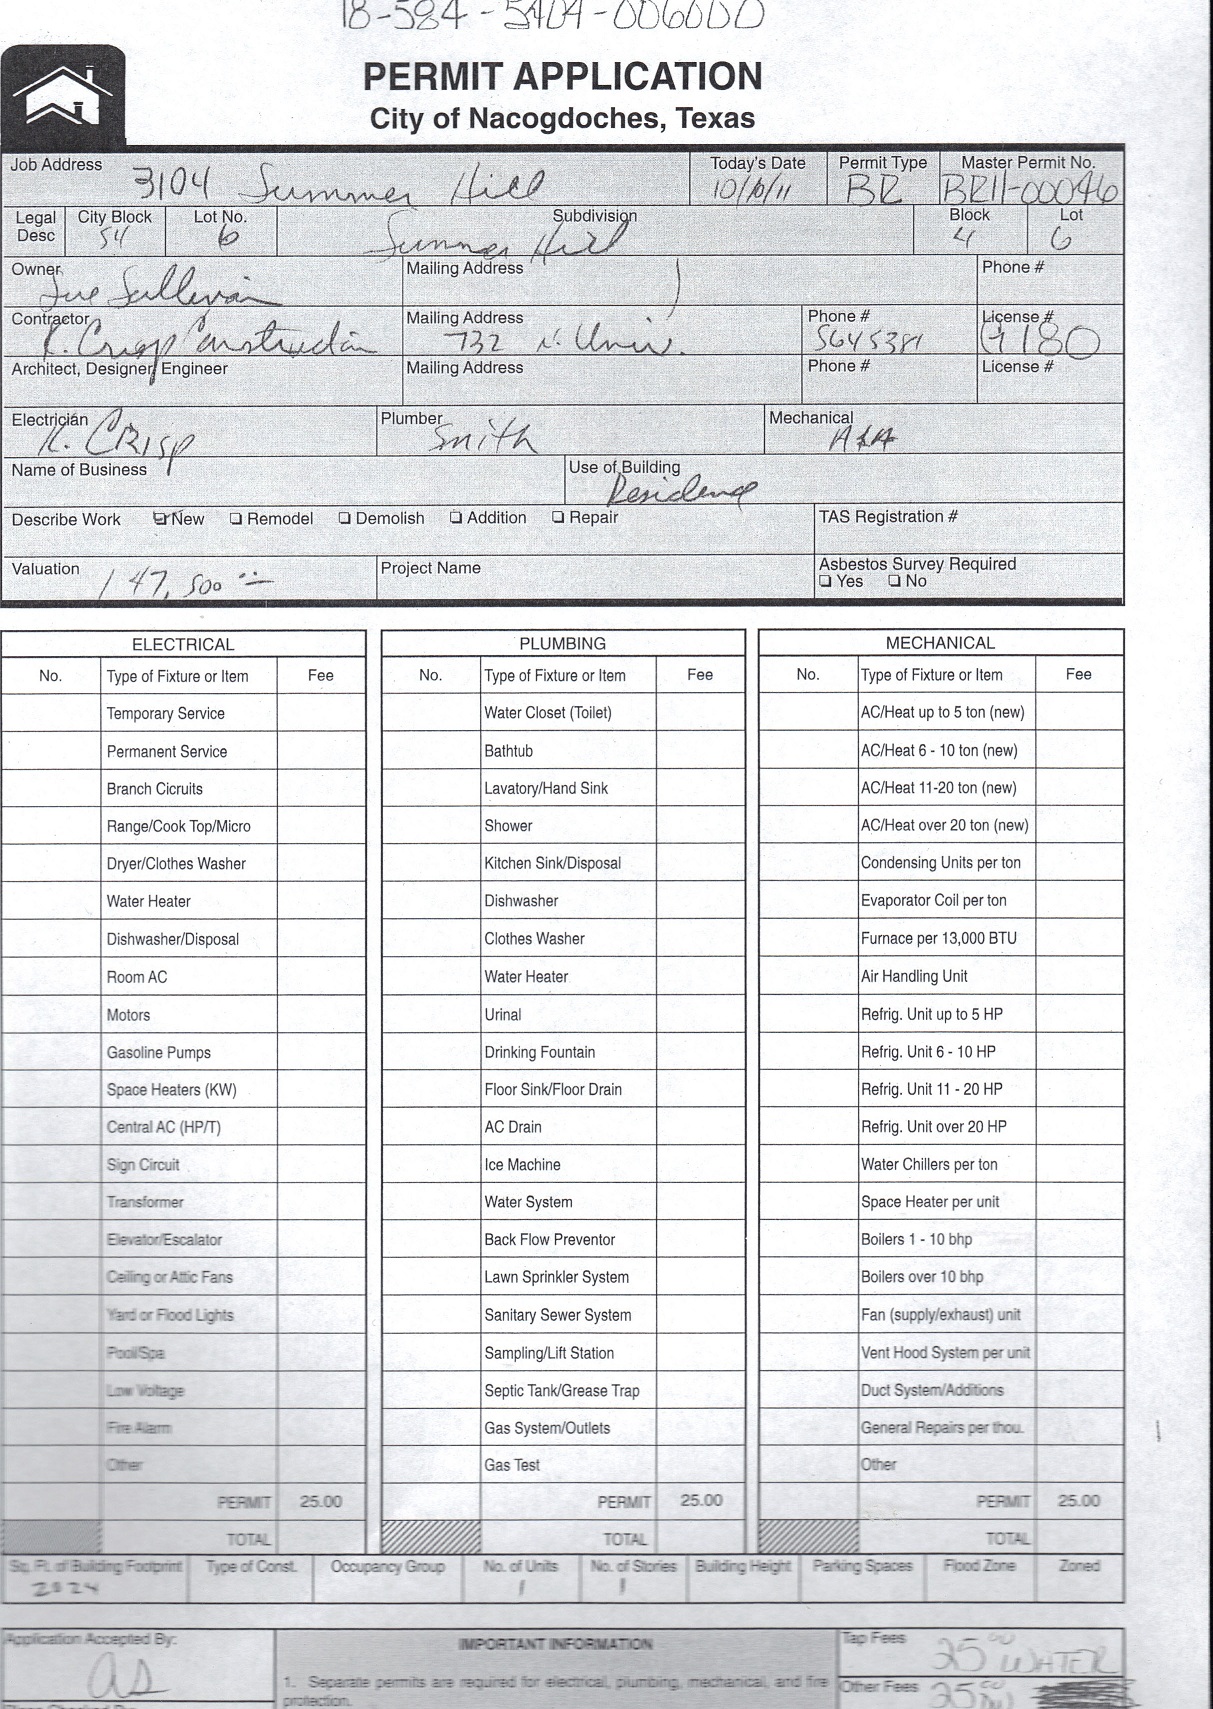 18-584-5404-006000
PERMIT APPLICATION
City of Nacogdoches, Texas
Job Address 3104 Summer Hill Today's Date 10/10/11 Permit Type BR Master Permit No. BR11-00046
Legal Desc City Block 54 Lot No. 6 Subdivision Summer Hill Block 4 Lot 6
Owner Sue Sullivan Mailing Address Phone #
Contractor K. Crisp Construction Mailing Address 732 N. Univ. Phone # 5645381 License # G180
Architect, Designer, Engineer Mailing Address Phone # License #
Electrician K. CRISP Plumber Smith Mechanical A&A
Name of Business Use of Building Residence
Describe Work New Remodel Demolish Addition Repair TAS Registration #
Valuation 147,500 Project Name Asbestos Survey Required
Yes No
ELECTRICAL PLUMBING MECHANICAL
No. Type of Fixture or Item Fee No. Type of Fixture or Item Fee No. Type of Fixture or Item Fee
Temporary Service Water Closet (Toilet) AC/Heat up to 5 ton (new)
Permanent Service Bathtub AC/Heat 6 - 10 ton (new)
Branch Cicruits Lavatory/Hand Sink AC/Heat 11-20 ton (new)
Range/Cook Top/Micro Shower AC/Heat over 20 ton (new)
Dryer/Clothes Washer Kitchen Sink/Disposal Condensing Units per ton
Water Heater Dishwasher Evaporator Coil per ton
Dishwasher/Disposal Clothes Washer Furnace per 13,000 BTU
Room AC Water Heater Air Handling Unit
Motors Urinal Refrig. Unit up to 5 HP
Gasoline Pumps Drinking Fountain Refrig. Unit 6 - 10 HP
Space Heaters (KW) Floor Sink/Floor Drain Refrig. Unit 11 - 20 HP
Central AC (HP/T) AC Drain Refrig. Unit over 20 HP
Sign Circuit Ice Machine Water Chillers per ton
Transformer Water System Space Heater per unit
Elevator/Escalator Back Flow Preventor Boilers 1 - 10 bhp
Ceiling or Attic Fans Lawn Sprinkler System Boilers over 10 bhp
Yard or Flood Lights Sanitary Sewer System Fan (supply/exhaust) unit
Pool/Spa Sampling/Lift Station Vent Hood System per unit
Low Voltage Septic Tank/Grease Trap Duct System/Additions
Fire Alarm Gas System/Outlets General Repairs per thou.
Other Gas Test Other
PERMIT 25.00 PERMIT 25.00 PERMIT 25.00
TOTAL TOTAL TOTAL
Sq. Ft. of Building Footprint Type of Const. Occupancy Group No. of Units No. of Stories Building Height Parking Spaces Flood Zone Zoned
2024 1 1
Application Accepted By: as IMPORTANT INFORMATION Tap Fees 25 00 WATER
1. Separate permits are required for electrical, plumbing, mechanical, and fire protection. Other Fees